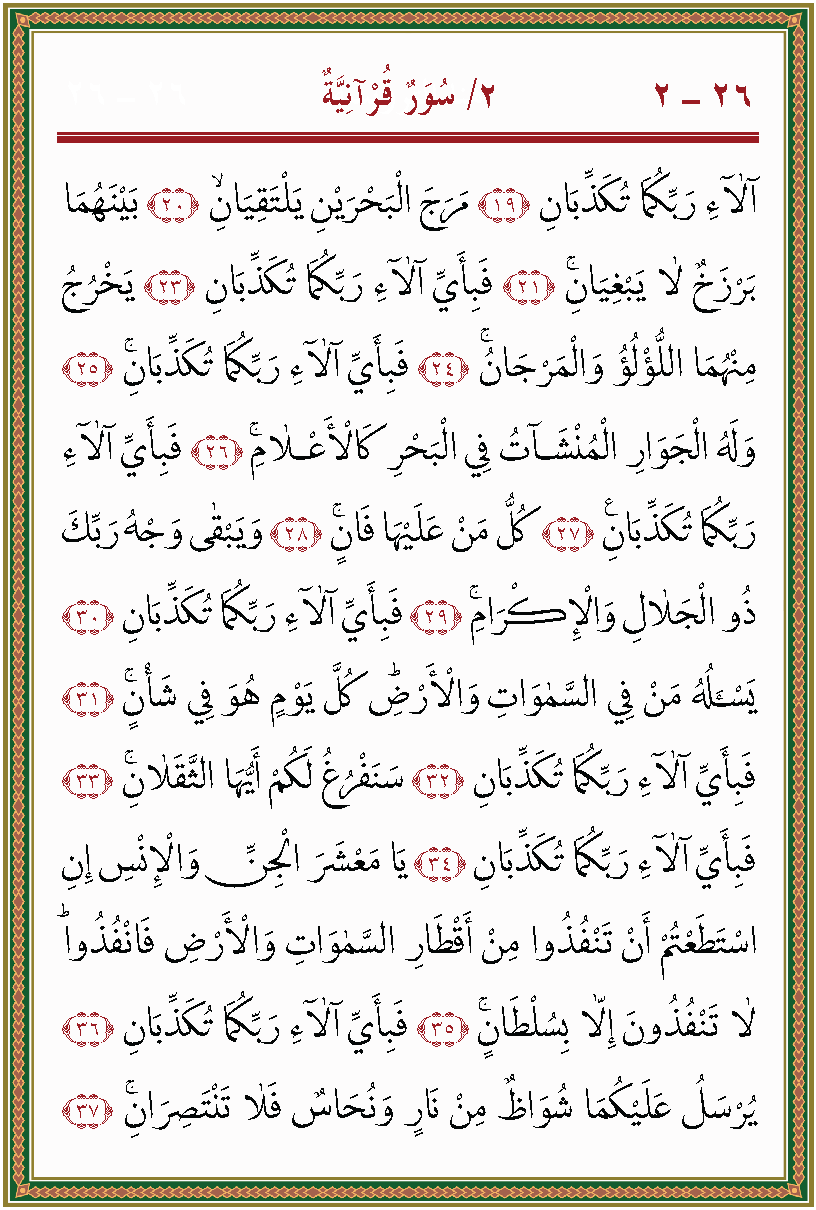 ٢٦ – ٢ ٢/ سُوَرٌ قُرْآنِيَّةٌ ٢٦ – ٢٦
آلَاۤءِ رَبِّكُمَا تُكَذِّبَانِ ﴿١٩﴾ مَرَجَ الْبَحْرَيْنِ يَلْتَقِيَانِۙ ﴿٢٠﴾ بَيْنَهُمَا
بَرْزَخٌ لَا يَبْغِيَانِۚ ﴿٢١﴾ فَبِأَيِّ آلَاۤءِ رَبِّكُمَا تُكَذِّبَانِ ﴿٢٣﴾ يَخْرُجُ
مِنْهُمَا اللُّؤْلُؤُ وَالْمَرْجَانُۚ ﴿٢٤﴾ فَبِأَيِّ آلَاۤءِ رَبِّكُمَا تُكَذِّبَانِۚ ﴿٢٥﴾
وَلَهُ الْجَوَارِ الْمُنْشَآتُ فِي الْبَحْرِ كَالْأَعْلَامِۚ ﴿٢٦﴾ فَبِأَيِّ آلَاۤءِ
رَبِّكُمَا تُكَذِّبَانِۚ ﴿٢٧﴾ كُلُّ مَنْ عَلَيْهَا فَانٍۚ ﴿٢٨﴾ وَيَبْقٰى وَجْهُ رَبِّكَ
ذُو الْجَلَالِ وَالْإِكْرَامِۚ ﴿٢٩﴾ فَبِأَيِّ آلَاۤءِ رَبِّكُمَا تُكَذِّبَانِ ﴿٣٠﴾
يَسْـَٔلُهُ مَنْ فِي السَّمٰوَاتِ وَالْأَرْضِۜ كُلَّ يَوْمٍ هُوَ فِي شَأْنٍۚ ﴿٣١﴾
فَبِأَيِّ آلَاۤءِ رَبِّكُمَا تُكَذِّبَانِ ﴿٣٢﴾ سَنَفْرُغُ لَكُمْ أَيُّهَا الثَّقَلَانِۚ ﴿٣٣﴾
فَبِأَيِّ آلَاۤءِ رَبِّكُمَا تُكَذِّبَانِ ﴿٣٤﴾ يَا مَعْشَرَ الْجِنِّ وَالْإِنْسِ إِنِ
اسْتَطَعْتُمْ أَنْ تَنْفُذُوا مِنْ أَقْطَارِ السَّمٰوَاتِ وَالْأَرْضِ فَانْفُذُواۜ
لَا تَنْفُذُونَ إِلَّا بِسُلْطَانٍۚ ﴿٣٥﴾ فَبِأَيِّ آلَاۤءِ رَبِّكُمَا تُكَذِّبَانِ ﴿٣٦﴾
يُرْسَلُ عَلَيْكُمَا شُوَاظٌ مِنْ نَارٍ وَنُحَاسٌ فَلَا تَنْتَصِرَانِۚ ﴿٣٧﴾